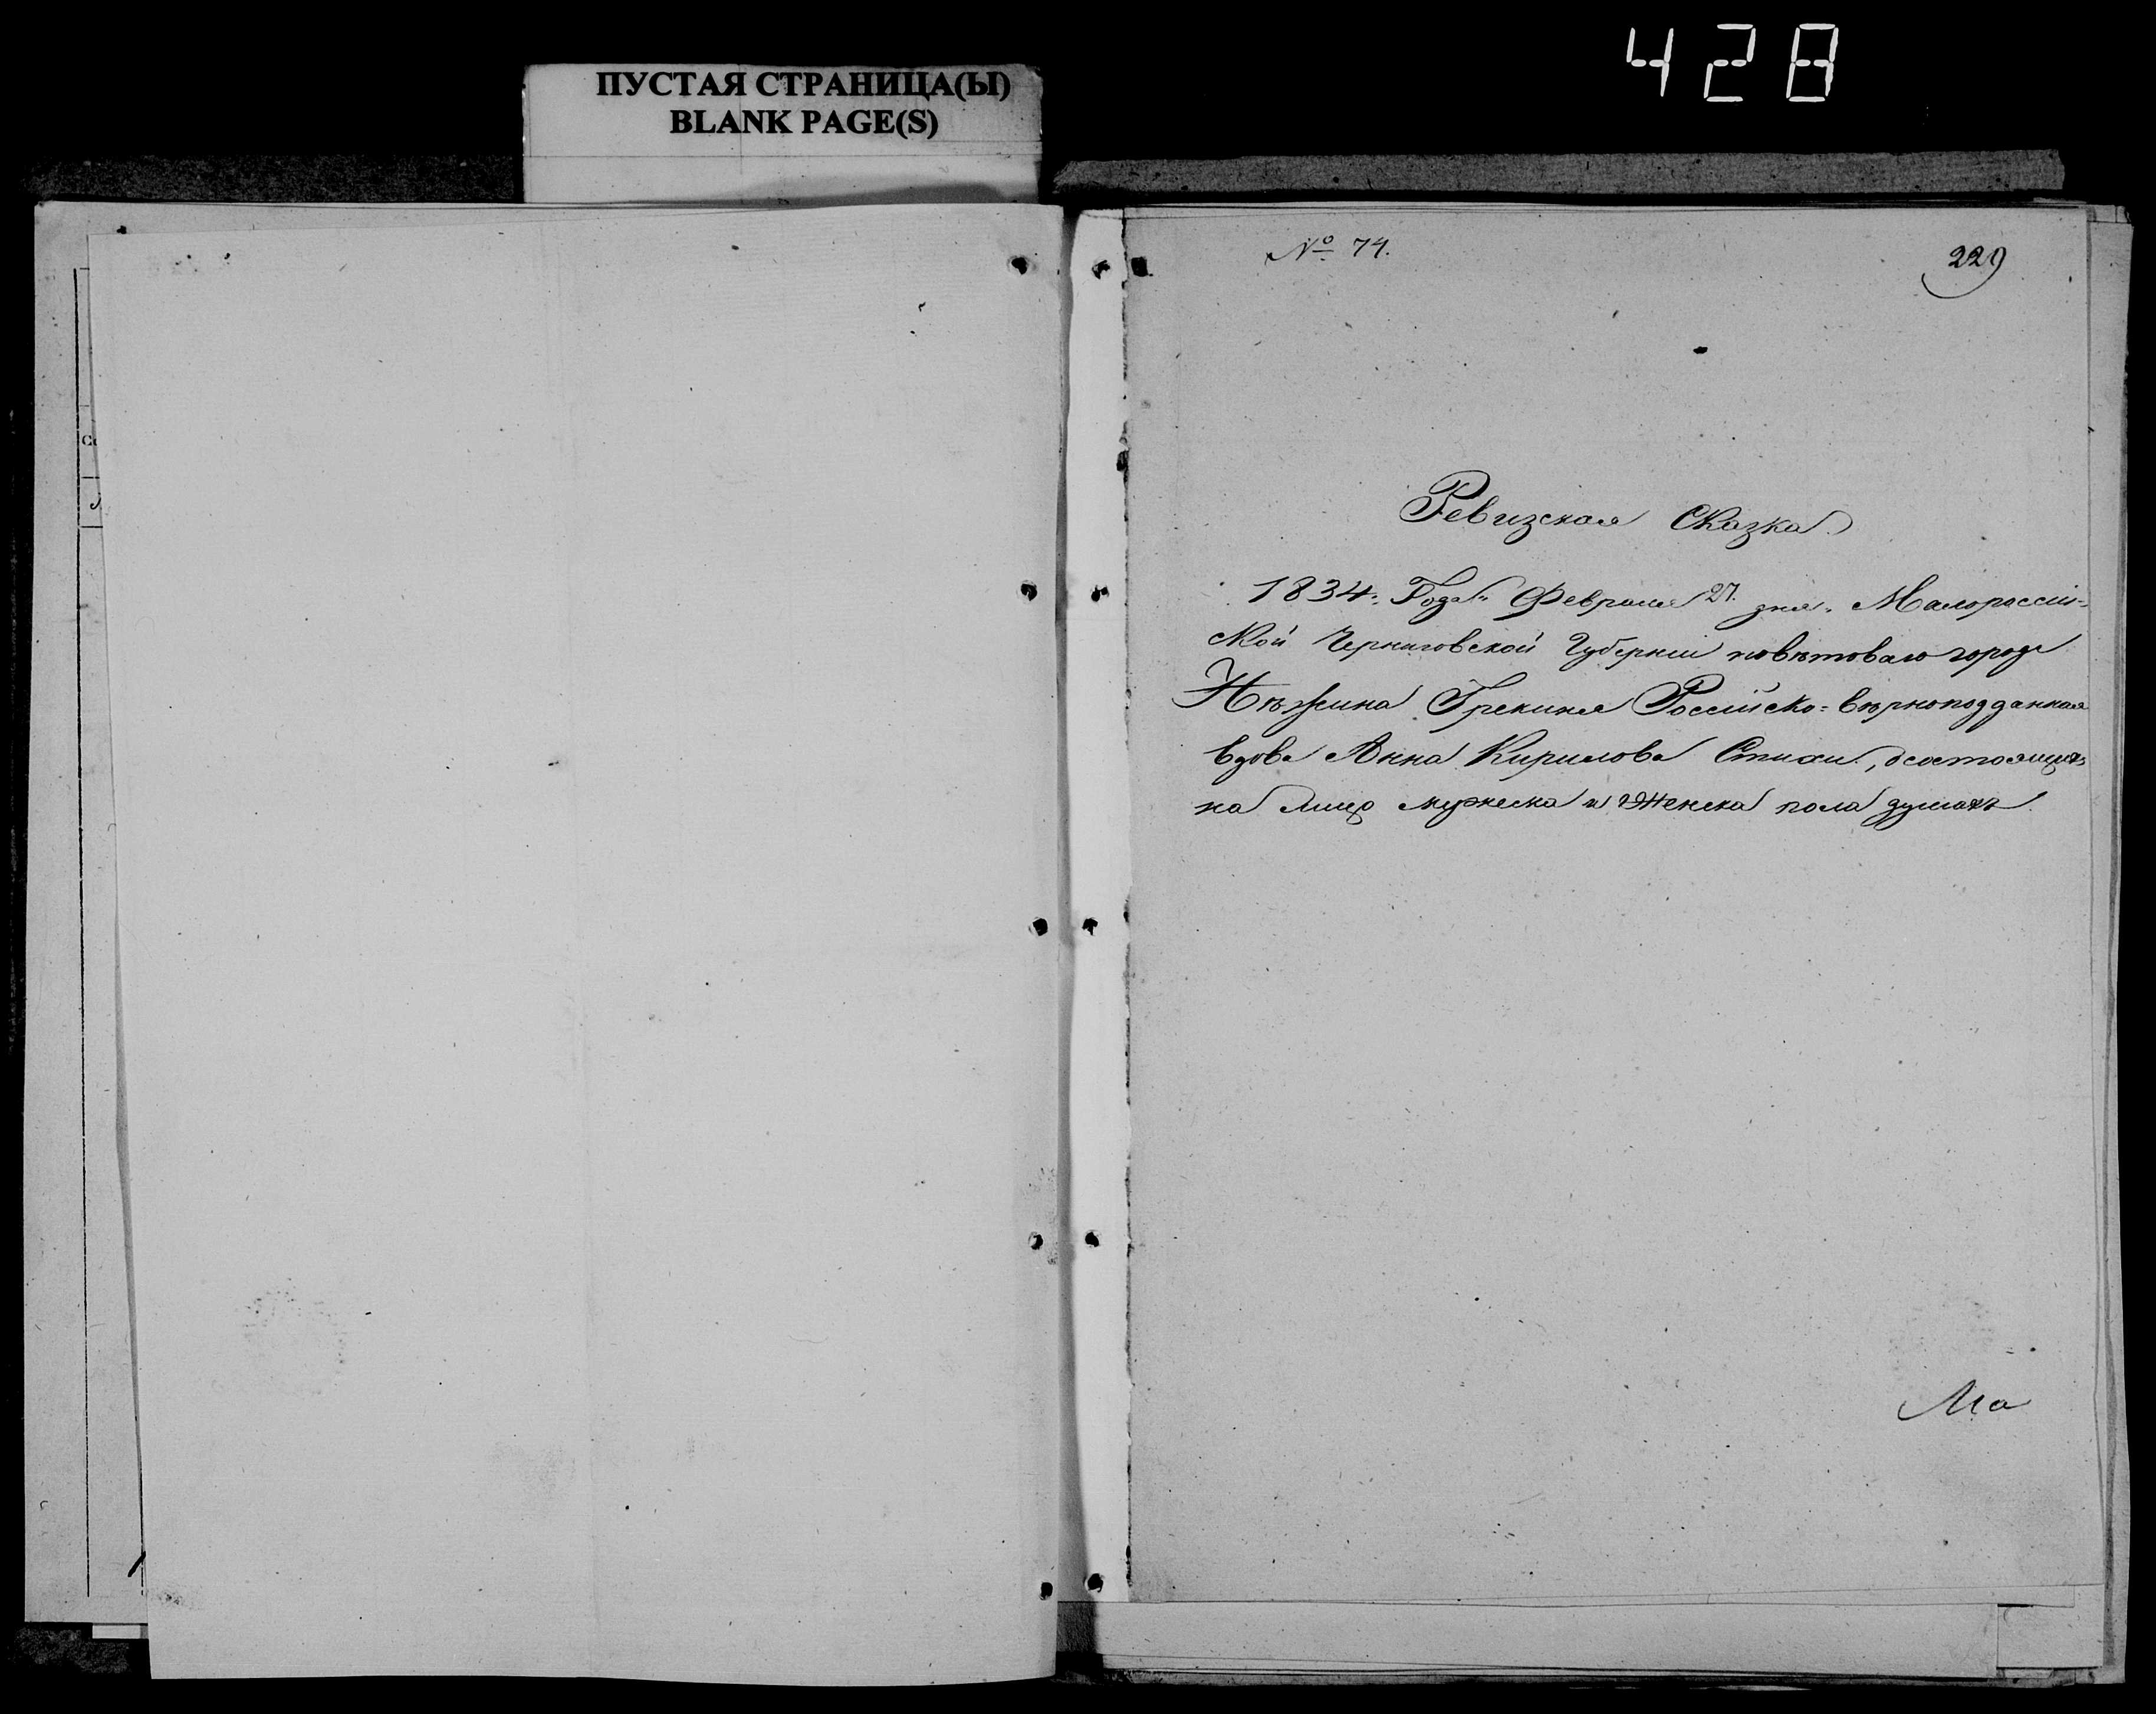 428
ПУСТАЯ СТРАНИЦА(Ы)
BLANK PAGE(S)
№ 74.
229
Ревизская Сказка.
1834: Года Февраля 27. дня. Малороссій-
ской Черниговской Губерніи повѣтоваго города
Нѣжина Грекиня Россійско-вѣрноподданная
вдова Анна Кирилова Стихи, о состоящихъ
на лицо мужеска и женска пола душахъ
Ма